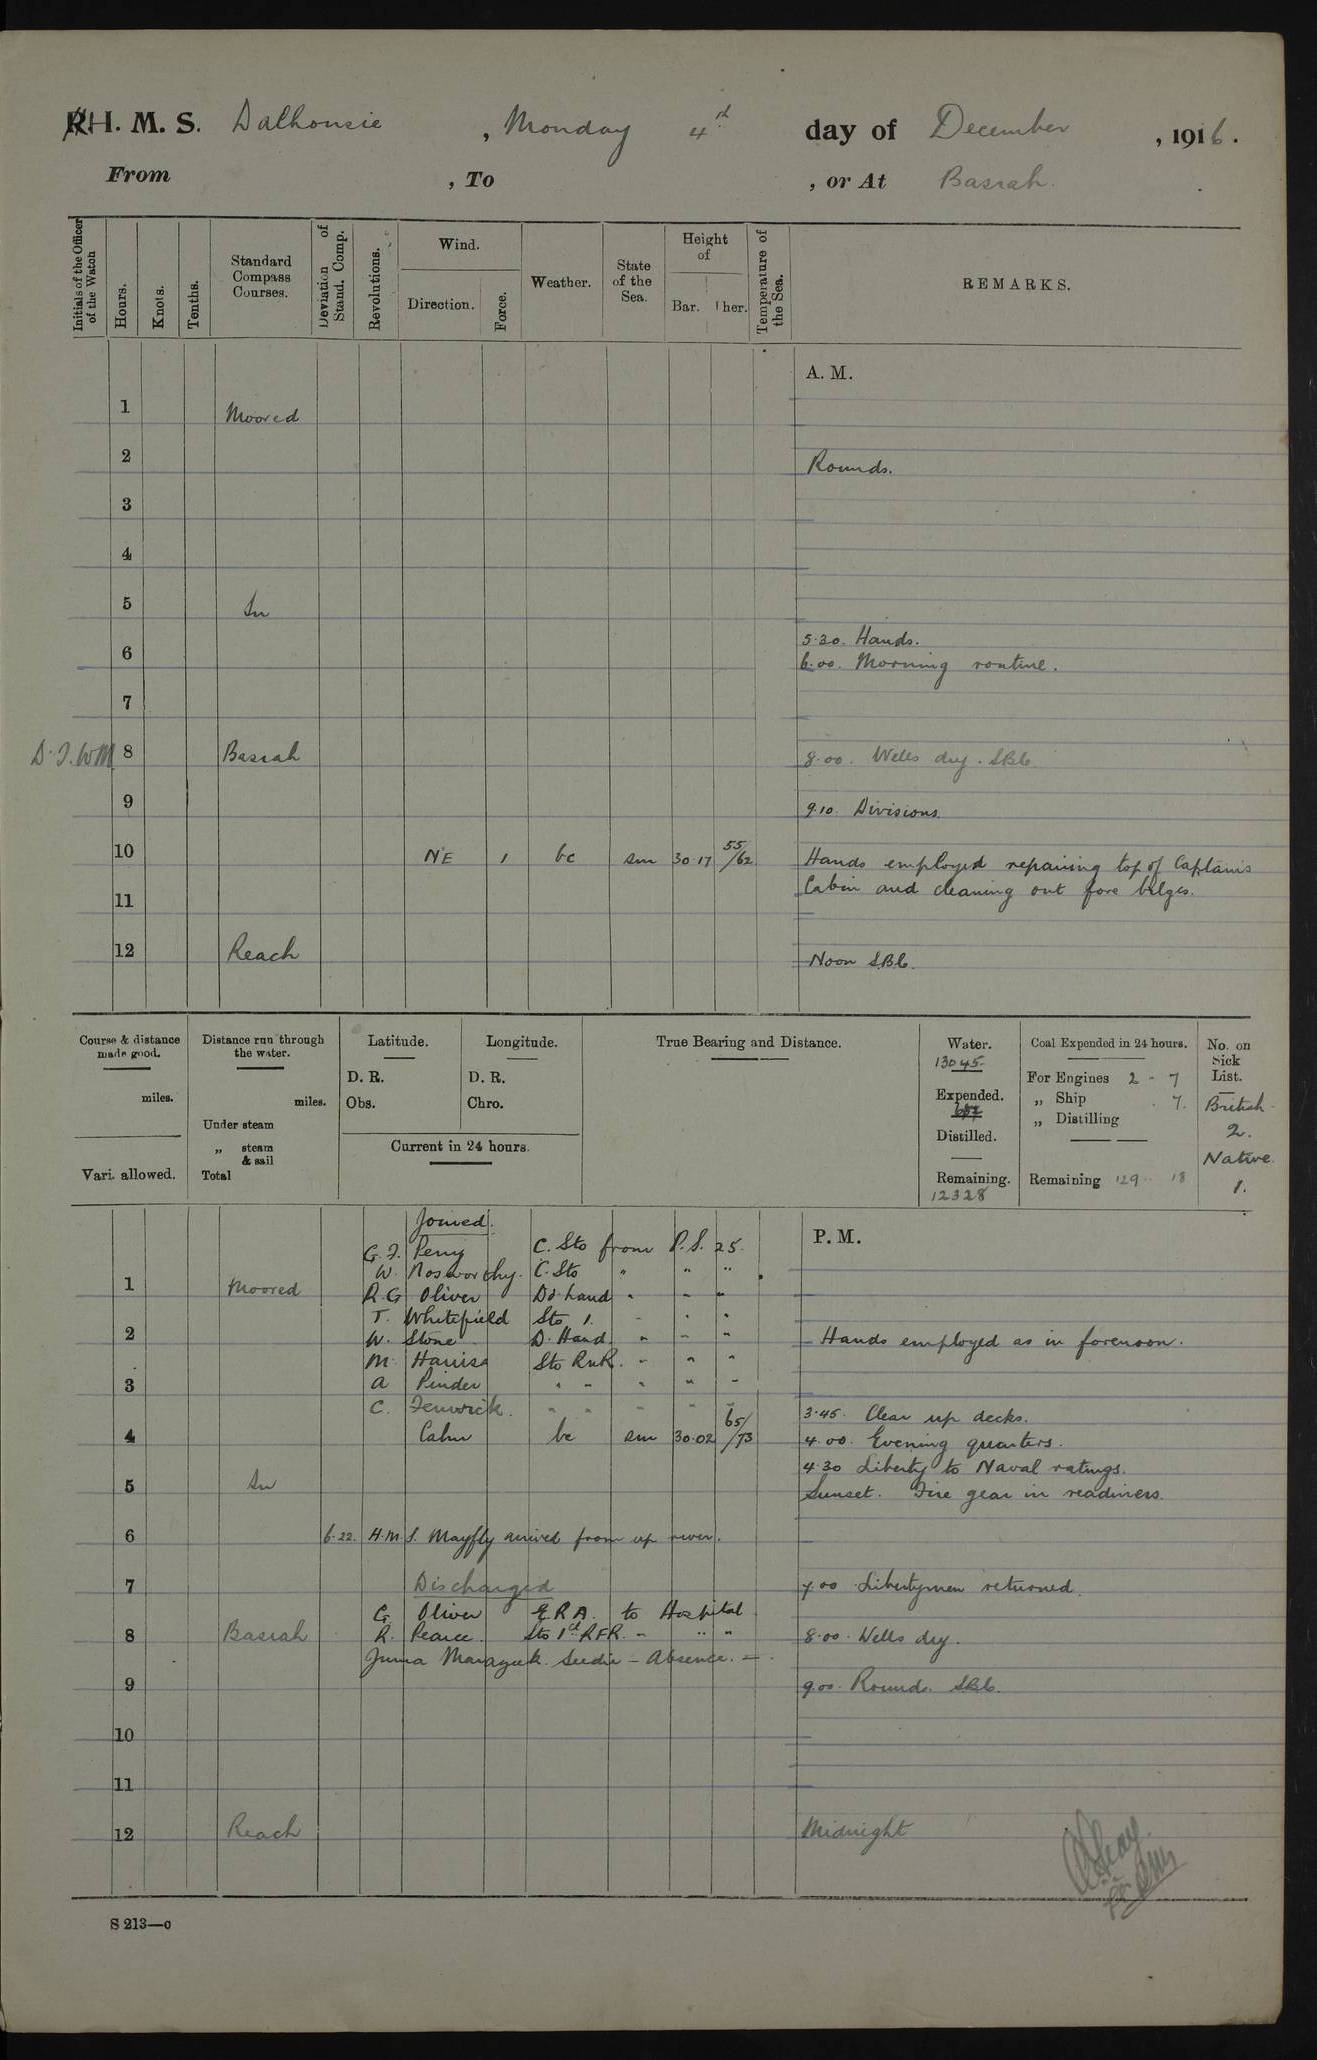 H. M. S. Dalhousie, Monday 4rd day of December, 1916.
From , To , or At Basrah.
Initials of the Officer of the Watch
Hours.
Knots.
Tenths.
Standard Compass Courses.
Deviation of Stand. Comp.
Revolutions.
Wind.
Direction.
Force.
Weather.
State of the Sea.
Height of
Bar. Ther.
Temperature of the Sea.
REMARKS.
A. M.
1 Moored
2 Rounds.
3
4
5 In
5.30. Hands.
6 6.00. Morning routine.
7
8 Basrah 8.00. Wells dry.
9 9.10. Divisions.
10 NE 1 bc sm 30.17 55/62 Hands employed repairing top of Captains
Cabin and cleaning out fore bilges.
11
12 Reach Noon
Course & distance made good.
miles.
Vari. allowed.
Distance run through the water.
miles.
Under steam
„ steam & sail
Total
Latitude.
D. R.
Obs.
Longitude.
D. R.
Chro.
Current in 24 hours.
True Bearing and Distance.
Water.
13045.
Expended.
Distilled.
Remaining.
12328
Coal Expended in 24 hours.
For Engines 2 - 7
„ Ship . 7.
„ Distilling
Remaining 129 .. 18
No. on Sick List.
British
2.
Native
1.
P. M.
Joined.
G. F. Perry C. Sto from P.S. 25.
W. Nosworthy. C. Sto " " "
1 Moored
R. G Oliver Dd hand " " "
T. Whitefield Sto 1. " " "
2 W. Stone D. Hand " " " Hands employed as in forenoon.
M. Harris Sto RNR. " " "
3 A Pinder " " " " "
C. Fenwick. " " " " " 3.45. Clear up decks.
4 Calm bc sm 30.02 65/73 4.00. Evening quarters.
4.30 Liberty to Naval ratings.
5 In Sunset. Fire gear in readiness.
6 6.22. H.M.S. Mayfly arrived from up river.
7 Discharged 7.00 Libertymen returned.
G Oliver E R A. to Hospital
8 Basrah R. Pearce. Sto 1st RFR. " " " 8.00. Wells dry.
Juma Seedie - Absence.
9 9.00. Rounds.
10
11
12 Reach Midnight
S 213—c